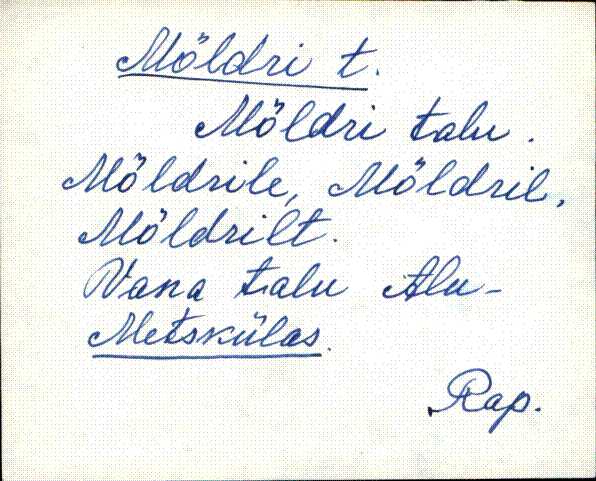 Möldri t.
Möldri talu.
Möldrile, Möldril,
Möldrilt.
Vana talu Alu-
Metskülas.
Rap.